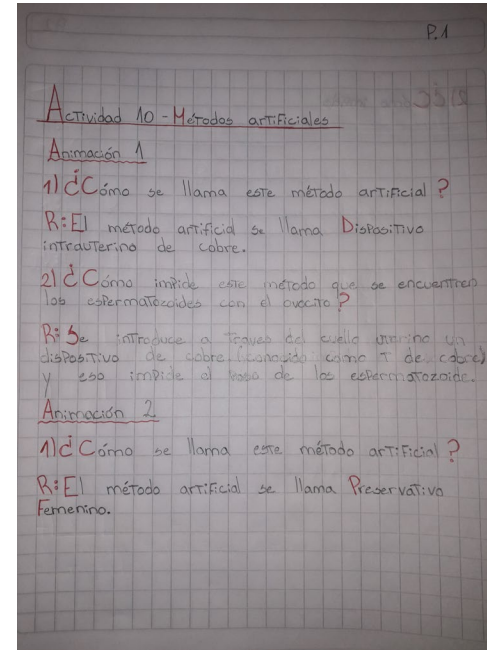 P.1
Actividad 10 - Métodos artificiales
Animación 1
1) ¿Cómo se llama este método artificial?
R: El método artificial se llama Dispositivo
intrauterino de cobre.
2) ¿Cómo impide este método que se encuentren
los espermatozoides con el ovocito?
R: Se introduce a través del cuello uterino un
dispositivo de cobre (conocido como T de cobre)
y eso impide el paso de los espermatozoide.
Animación 2
1) ¿Cómo se llama este método artificial?
R: El método artificial se llama Preservativo
Femenino.